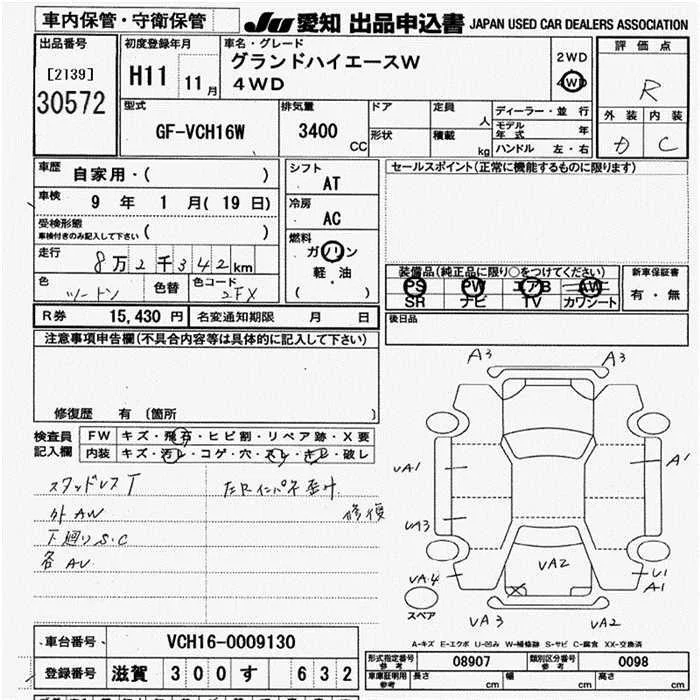 車内保管・守衛保管
JU 愛知 出品申込書 JAPAN USED CAR DEALERS ASSOCIATION
出品番号
[2139]
30572
初度登録年月
H11 11月
車名・グレード
グランドハイエースW
4WD
2WD
4WD
評価点
R
外装 内装
D C
型式
GF-VCH16W
排気量
3400
CC
ドア
形状
定員
人
積載
kg
ディーラー・並行
モデル年式 年
ハンドル 左・右
車歴
自家用・( )
車検
9 年 1 月( 19 日)
受検形態
車検付きのみ記入して下さい ( )
走行
8万2千342km
色
ツートン
色替
色コード
2FX
シフト
AT
冷房
AC
燃料
ガソリン
軽・油
( )
セールスポイント(正常に機能するものに限ります)
装備品(純正品に限り○をつけてください)
PS PW エアB AW
SR ナビ TV カワシート
新車保証書
有・無
R券 15,430 円 名変通知期限 月 日
後日品
注意事項申告欄(不具合内容等は具体的に記入して下さい)
修復歴 有 (箇所 )
検査員記入欄
FW キズ・飛石・ヒビ割・リペア跡・X要
内装 キズ・汚レ・コゲ・穴・スレ・キレ・破レ
スタッドレスT
外AW
下廻りS.C
修復
A3
A3
UA1
A1
UA3
UA4
UA2
U1
A1
UA3
UA2
スペア
A-キズ E-エクボ U-凹み W-補修跡 S-サビ C-腐食 XX-交換済
車台番号 VCH16-0009130
登録番号 滋賀 300 す 632
形式指定番号 参考 08907
類別区分番号 参考 0098
車庫証明用 参考 長さ cm 幅 cm 高さ cm